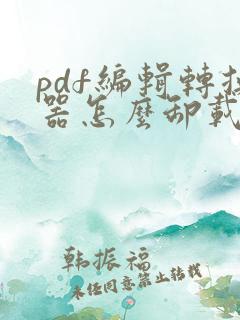 pdf編輯轉换
器怎麼卸載
韩振福
未经同意禁止转载